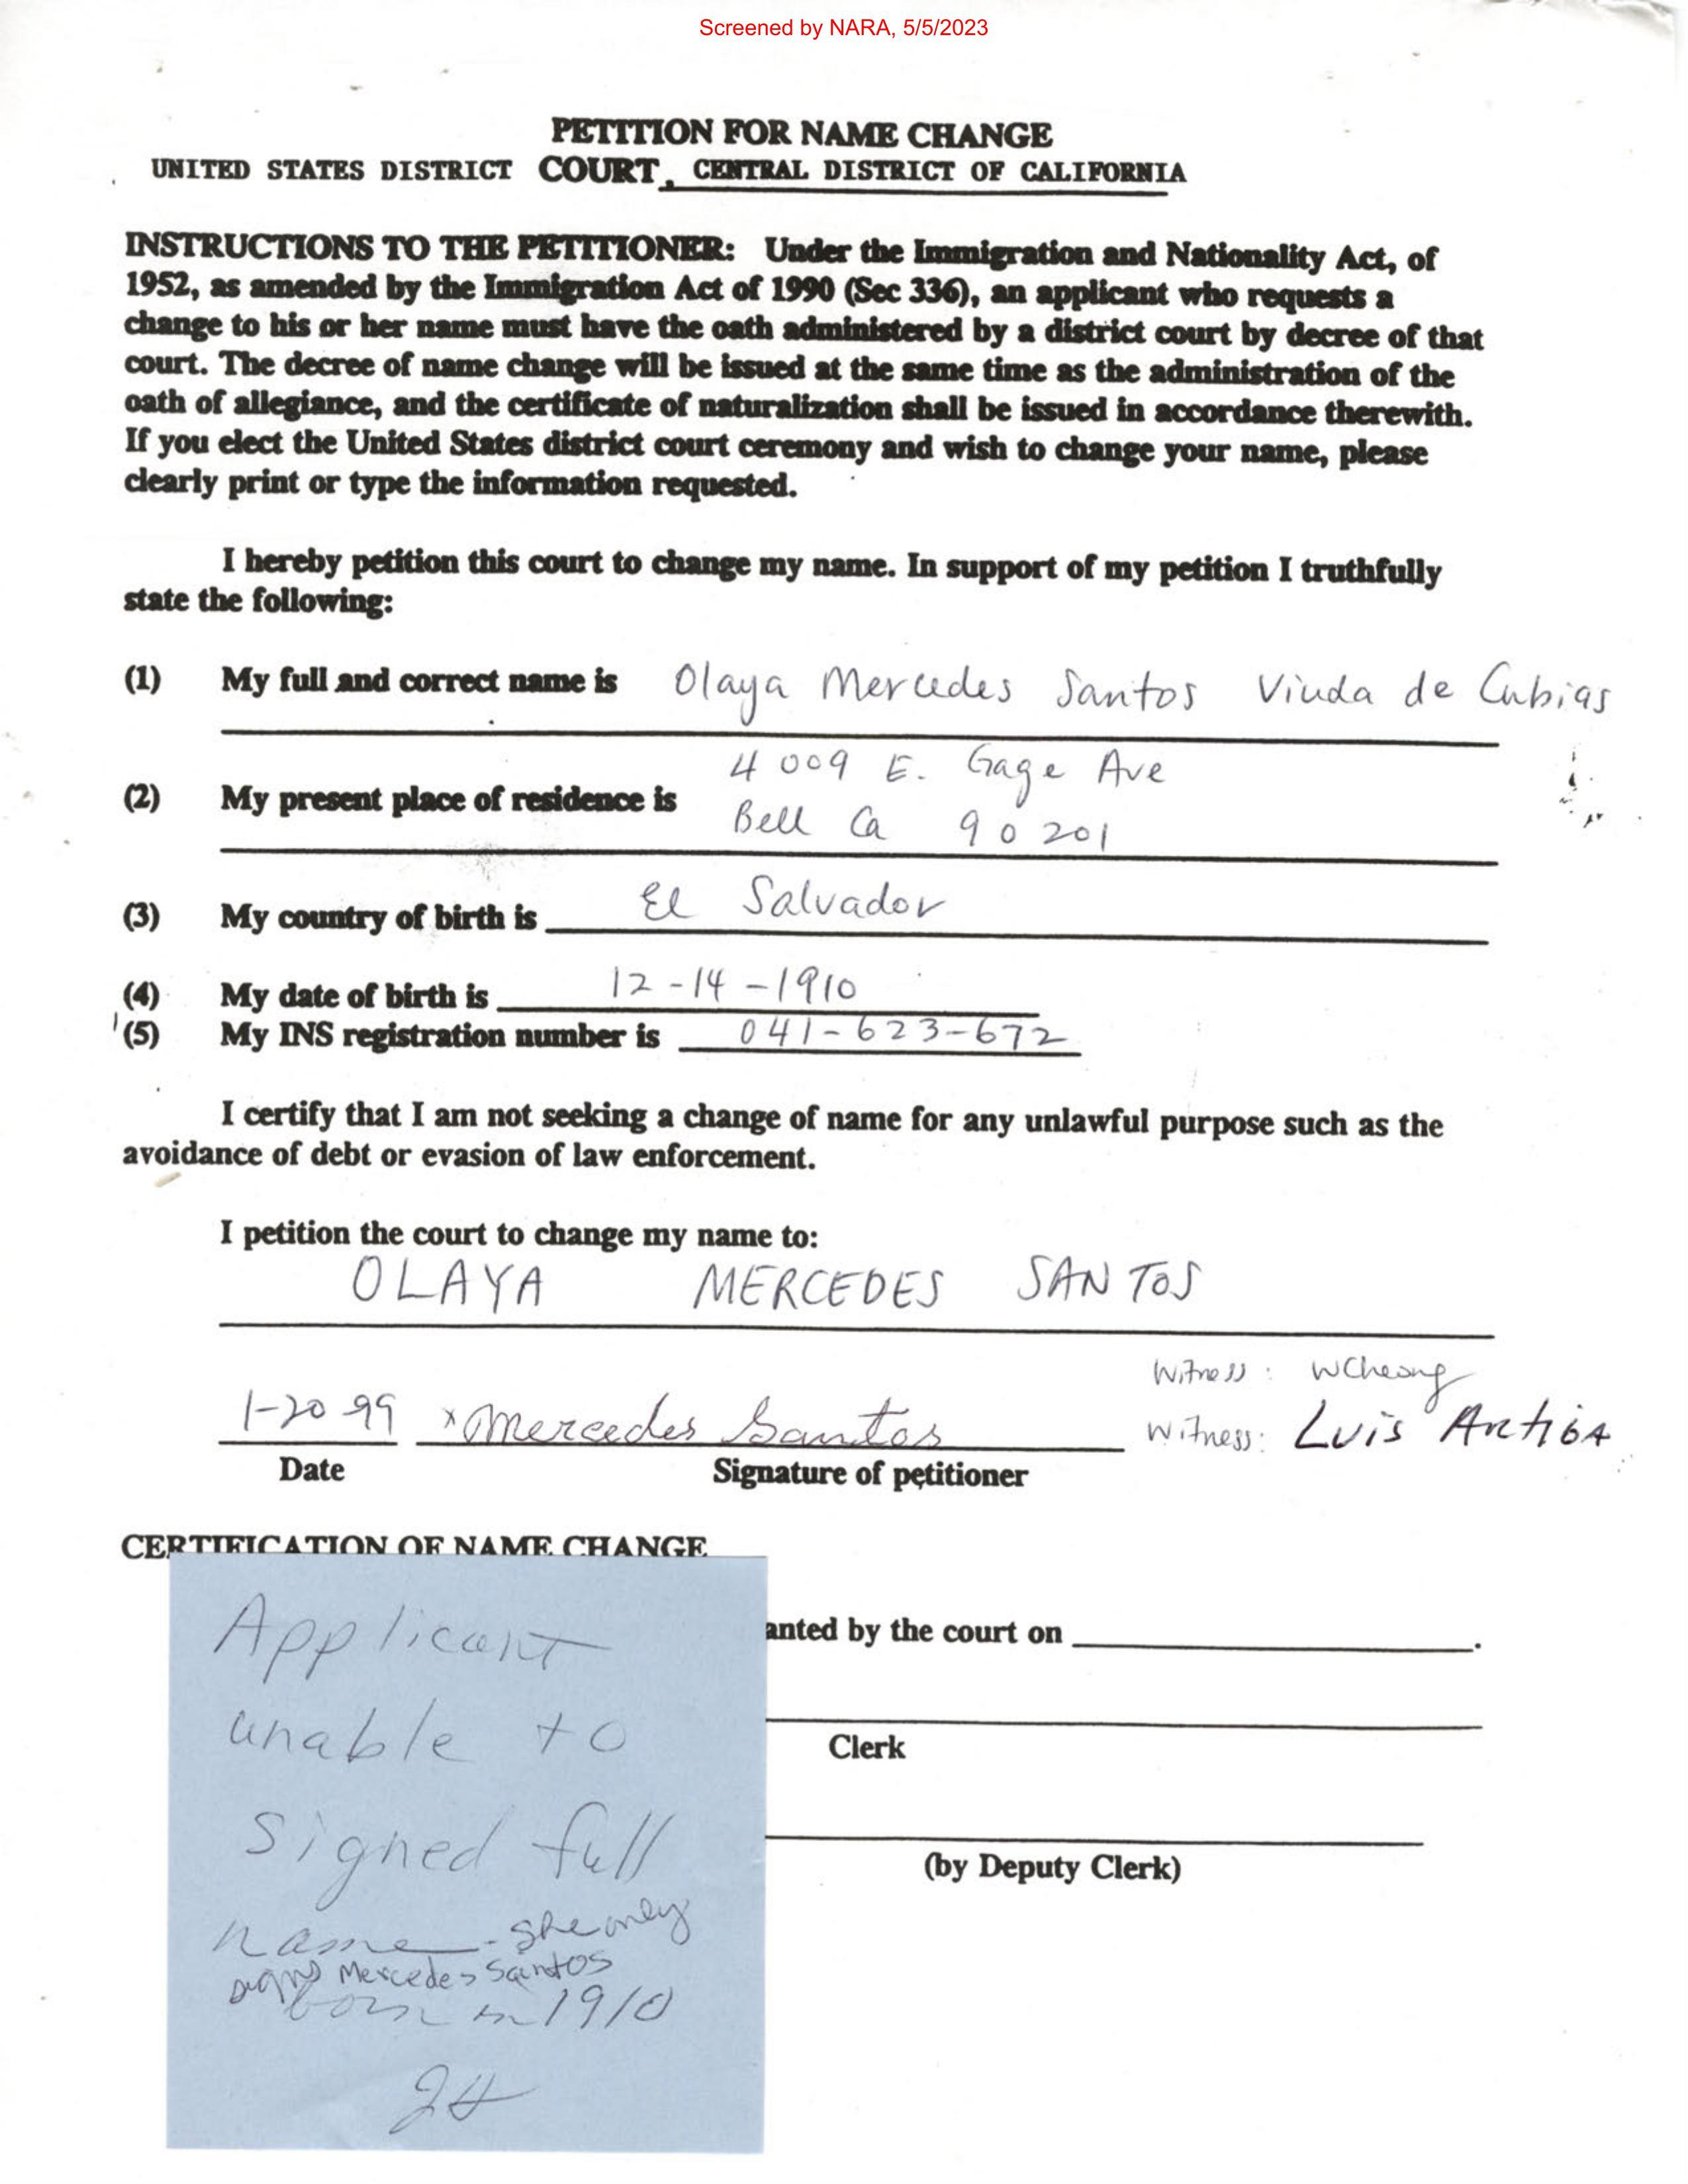 Screened by NARA, 5/5/2023
PETITION FOR NAME CHANGE
UNITED STATES DISTRICT COURT, CENTRAL DISTRICT OF CALIFORNIA
INSTRUCTIONS TO THE PETITIONER: Under the Immigration and Nationality Act, of
1952, as amended by the Immigration Act of 1990 (Sec 336), an applicant who requests a
change to his or her name must have the oath administered by a district court by decree of that
court. The decree of name change will be issued at the same time as the administration of the
oath of allegiance, and the certificate of naturalization shall be issued in accordance therewith.
If you elect the United States district court ceremony and wish to change your name, please
clearly print or type the information requested.
I hereby petition this court to change my name. In support of my petition I truthfully
state the following:
(1) My full and correct name is Olaya Mercedes Santos Viuda de Cubias
4009 E. Gage Ave
(2) My present place of residence is
Bell Ca 90201
(3) My country of birth is El Salvador
(4) My date of birth is 12-14-1910
(5) My INS registration number is 041-623-672
I certify that I am not seeking a change of name for any unlawful purpose such as the
avoidance of debt or evasion of law enforcement.
I petition the court to change my name to:
OLAYA MERCEDES SANTOS
Witness: WCheong
1-20-99 x Mercedes Santos Witness: Luis
Date Signature of petitioner
CERTIFICATION OF NAME CHANGE
anted by the court on
Clerk
(by Deputy Clerk)
Applicant
unable to
signed full
name - she only
signs Mercedes Santos
born in 1910